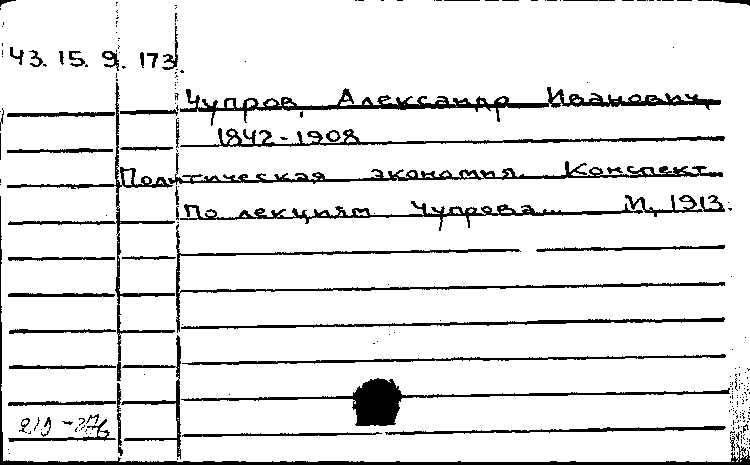 43. 15. 9. 173.
Чупров, Александр Иванович,
1842-1908
Политическая экономия. Конспект...
По лекциям Чупрова... М., 1913.